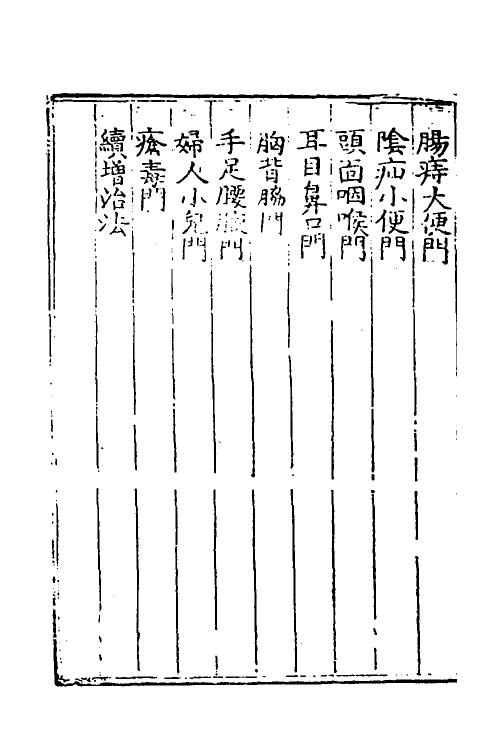 腸痔大便門
陰疝小便門
頭面咽喉門
耳目鼻口門
胸背脇門
手足腰腋門
婦人小兒門
瘡毒門
續增治法